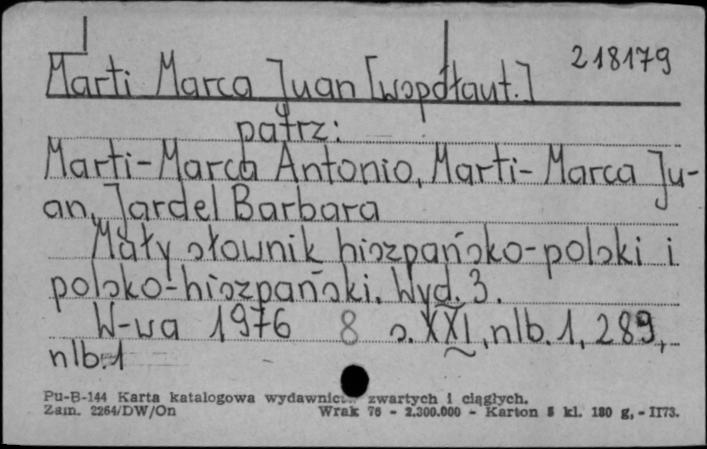 218179
Marti Marca Juan [współaut.]
patrz:
Marti-Marca Antonio, Marti-Marca Ju-
an, Jardel Barbara
Mały słownik hiszpańsko-polski i
polsko-hiszpański. Wyd. 3.
W-wa 1976 8 s. XXI, nlb. 1, 289,
nlb. 1
Pu-B-144 Karta katalogowa wydawnictw zwartych i ciągłych.
Zam. 2264/DW/On Wrak 76 - 2.300.000 - Karton 8 kl. 180 g, - II73.